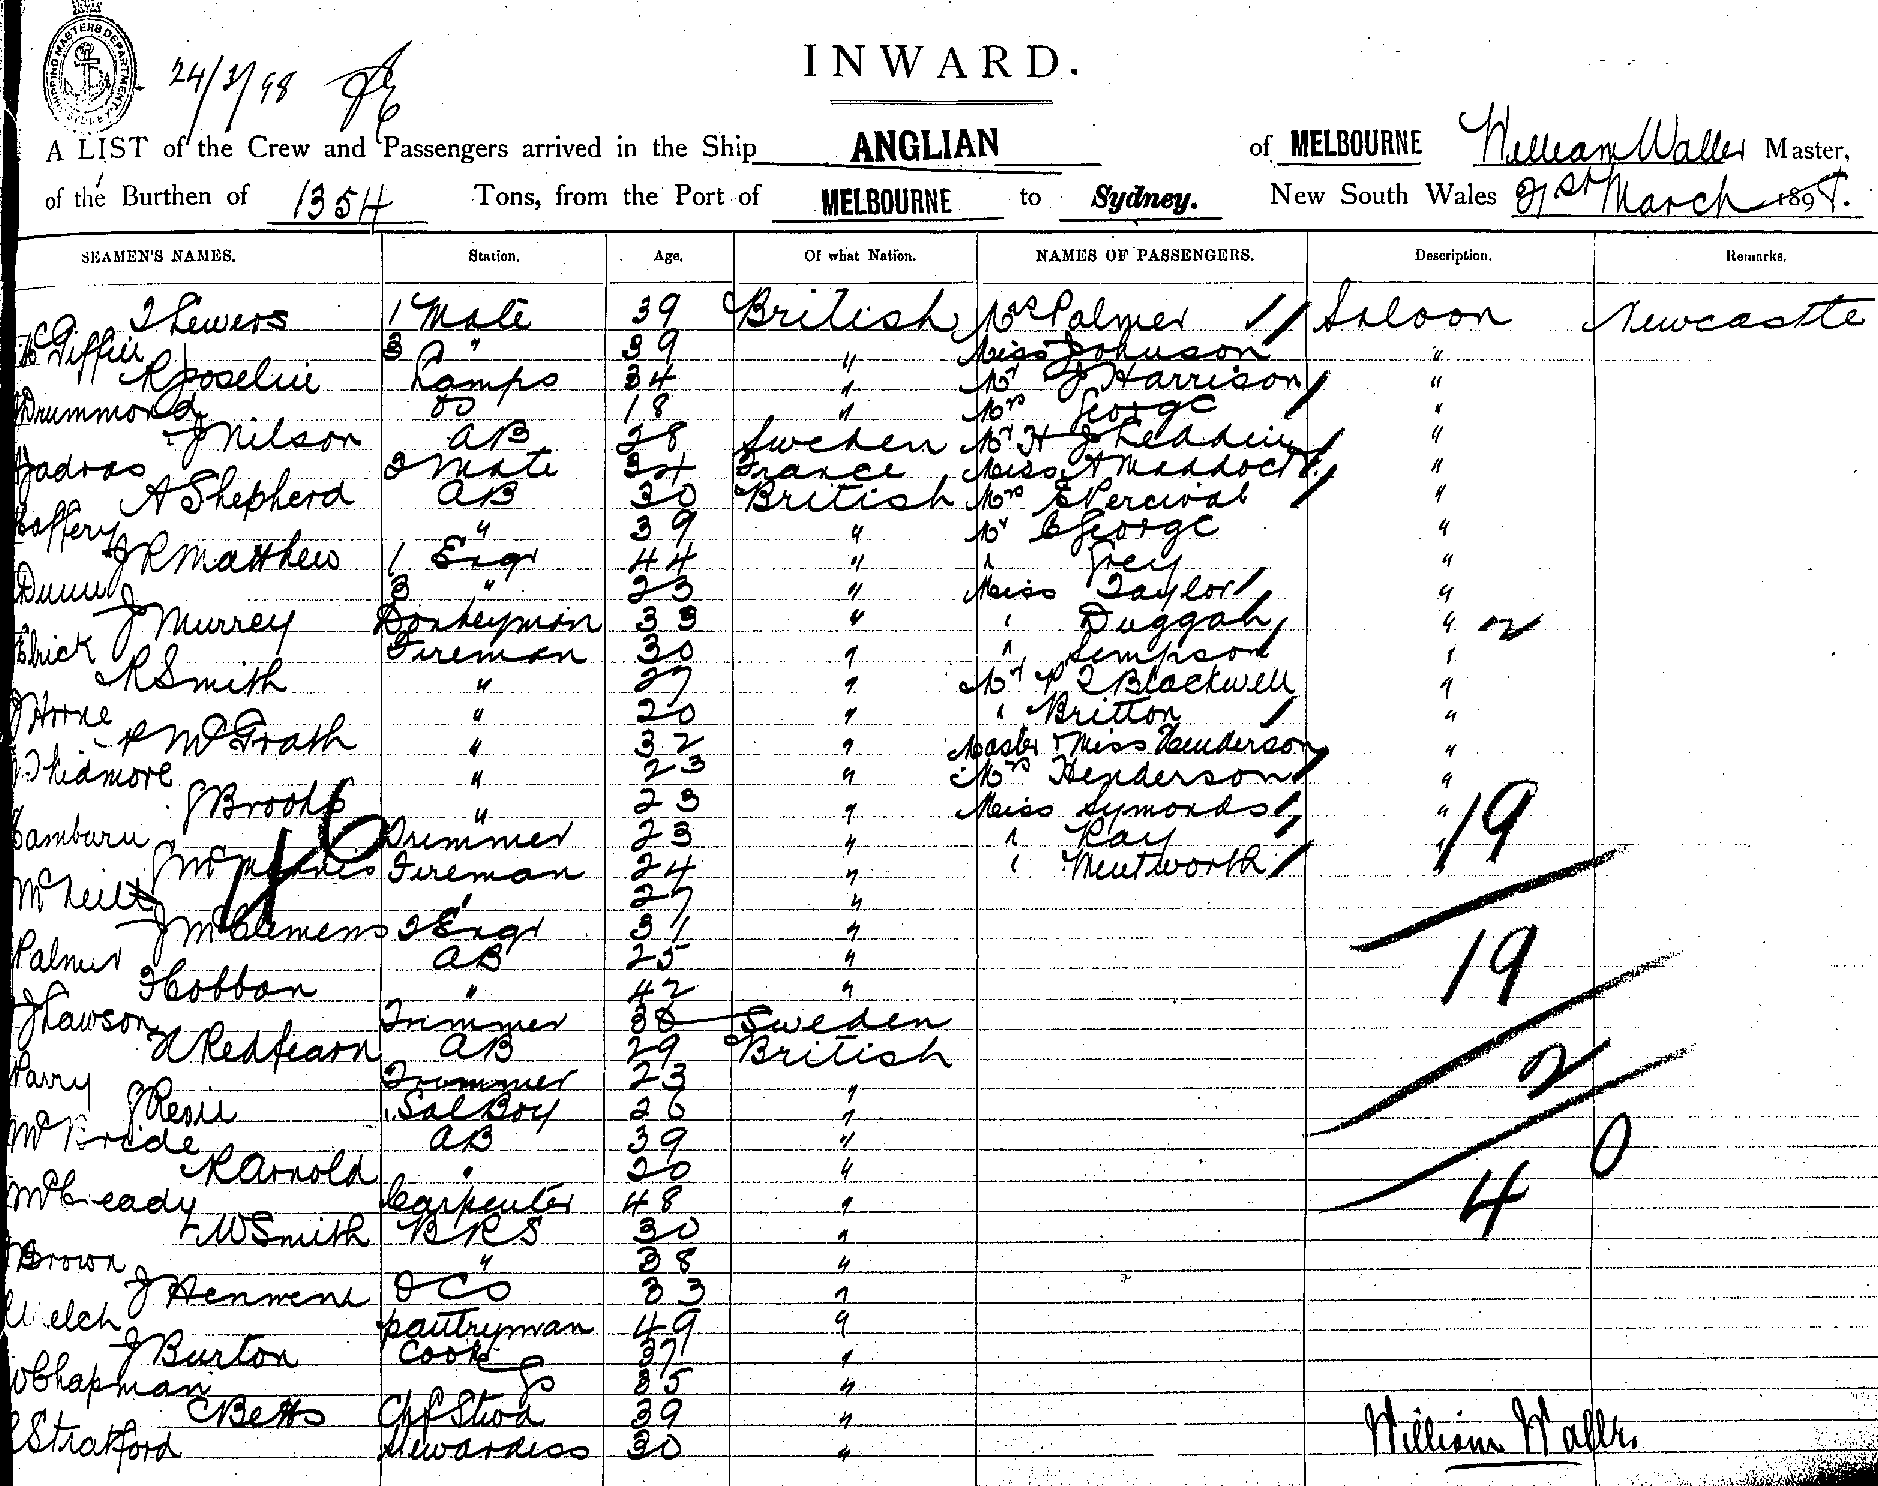 SHIPPING MASTERS DEPARTMENT SYDNEY
24/3/98
INWARD.
A LIST of the Crew and Passengers arrived in the Ship ANGLIAN of MELBOURNE William Waller Master,
of the Burthen of 1354 Tons, from the Port of MELBOURNE to Sydney. New South Wales 21st March 1898.
SEAMEN'S NAMES. Station. Age. Of what Nation. NAMES OF PASSENGERS. Description. Remarks.
1 Mate 39 British Mrs Palmer // Saloon Newcastle
3 " 39 " Miss Johnson "
Lamps 34 " Mr J Harrison / "
Drummond 18 " Mrs George / "
J Nilson AB 28 Sweden Mr H J "
2 Mate 34 France Miss A Maddock / "
A Shepherd AB 30 British Mrs E Percival / "
" 39 " Mr C George "
J R Matthew 1 Engr 44 " " Grey "
Dunn 3 " 23 " Miss Taylor / "
J Murrey Donkeyman 33 " " Duggah / " 2
Fireman 30 " " Simpson / "
R Smith " 27 " Mr P T Blackwell "
J Horne " 20 " " Britton / "
P McGrath " 32 " Master & Miss Henderson / "
Skidmore " 23 " Mrs Henderson / "
J Brooks " 23 " Miss Symonds / "
Trimmer 23 " " Ray / "
Fireman 24 " " Wentworth / " 19
McNeill " 27 "
16
J McClemens 2 Engr 31 "
Palmer AB 25 " 19
Hobban " 42 "
J Lawson Trimmer 38 Sweden
Redfearn AB 29 British
Parry Trimmer 23 " 2
26 "
McBride AB 39 " 0
R Arnold " 20 "
McCready Carpenter 48 " 4
W Smith BRS 30 "
Brown " 38 "
J 33 "
Welch pantryman 49 "
J Burton Cook 37 "
W Chapman 35 "
C Betts Chf Stwd 39 "
Stratford Stewardess 30 "
William Waller